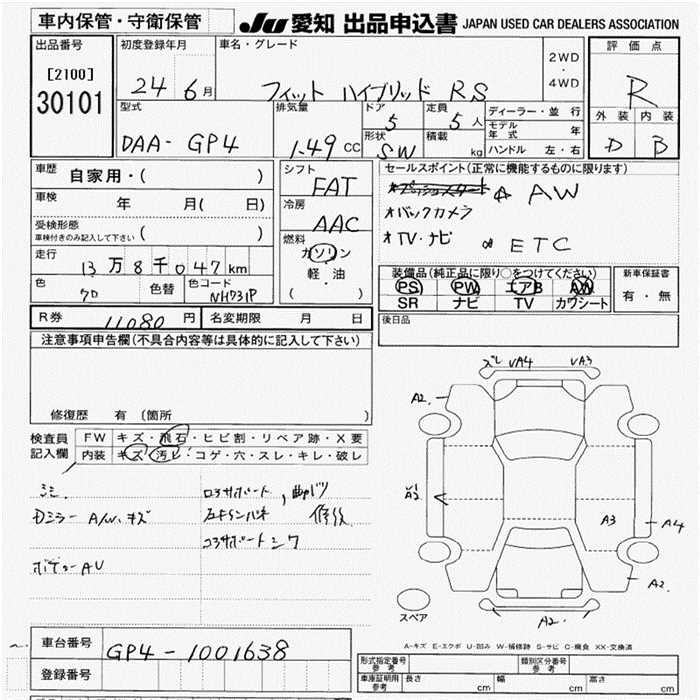 車内保管・守衛保管
JU 愛知 出品申込書 JAPAN USED CAR DEALERS ASSOCIATION
出品番号
[2100]
30101
初度登録年月
24 6月
車名・グレード
フィット ハイブリッド RS
2WD
・
4WD
評価点
R
外装 内装
D B
型式
DAA- GP4
排気量
1.49 CC
ドア
5
定員
5人
形状
SW
積載
kg
ディーラー・並行
モデル年式 年
ハンドル 左・右
車歴
自家用・( )
車検
年 月( 日)
受検形態
車検付きのみ記入して下さい ( )
走行
13万8千047km
色
色替
色コード
NH731P
シフト
FAT
冷房
AAC
燃料
ガソリン
軽・油
( ・ )
セールスポイント(正常に機能するものに限ります)
AW
バックカメラ
TV・ナビ
ETC
装備品(純正品に限り○をつけてください)
PS PW エアB AW
SR ナビ TV カワシート
新車保証書
有・無
R券 11080円
名変期限 月 日
後日品
注意事項申告欄(不具合内容等は具体的に記入して下さい)
修復歴 有 (箇所
検査員
記入欄
FW キズ・飛石・ヒビ割・リペア跡・X要
内装 キズ・汚レ・コゲ・穴・スレ・キレ・破レ
Dミラー A/W、キズ
ボデーAU
コアサポート
修後
コアサポートシワ
ズレ VA4 VA3
A2
A2
A3
A4
A2
A2
スペア
A-キズ E-エクボ U-凹み W-補修跡 S-サビ C-腐食 XX-交換済
車台番号
GP4-1001638
登録番号
形式指定番号
参考
類別区分番号
参考
車庫証明用
参考
長さ cm 幅 cm 高さ cm